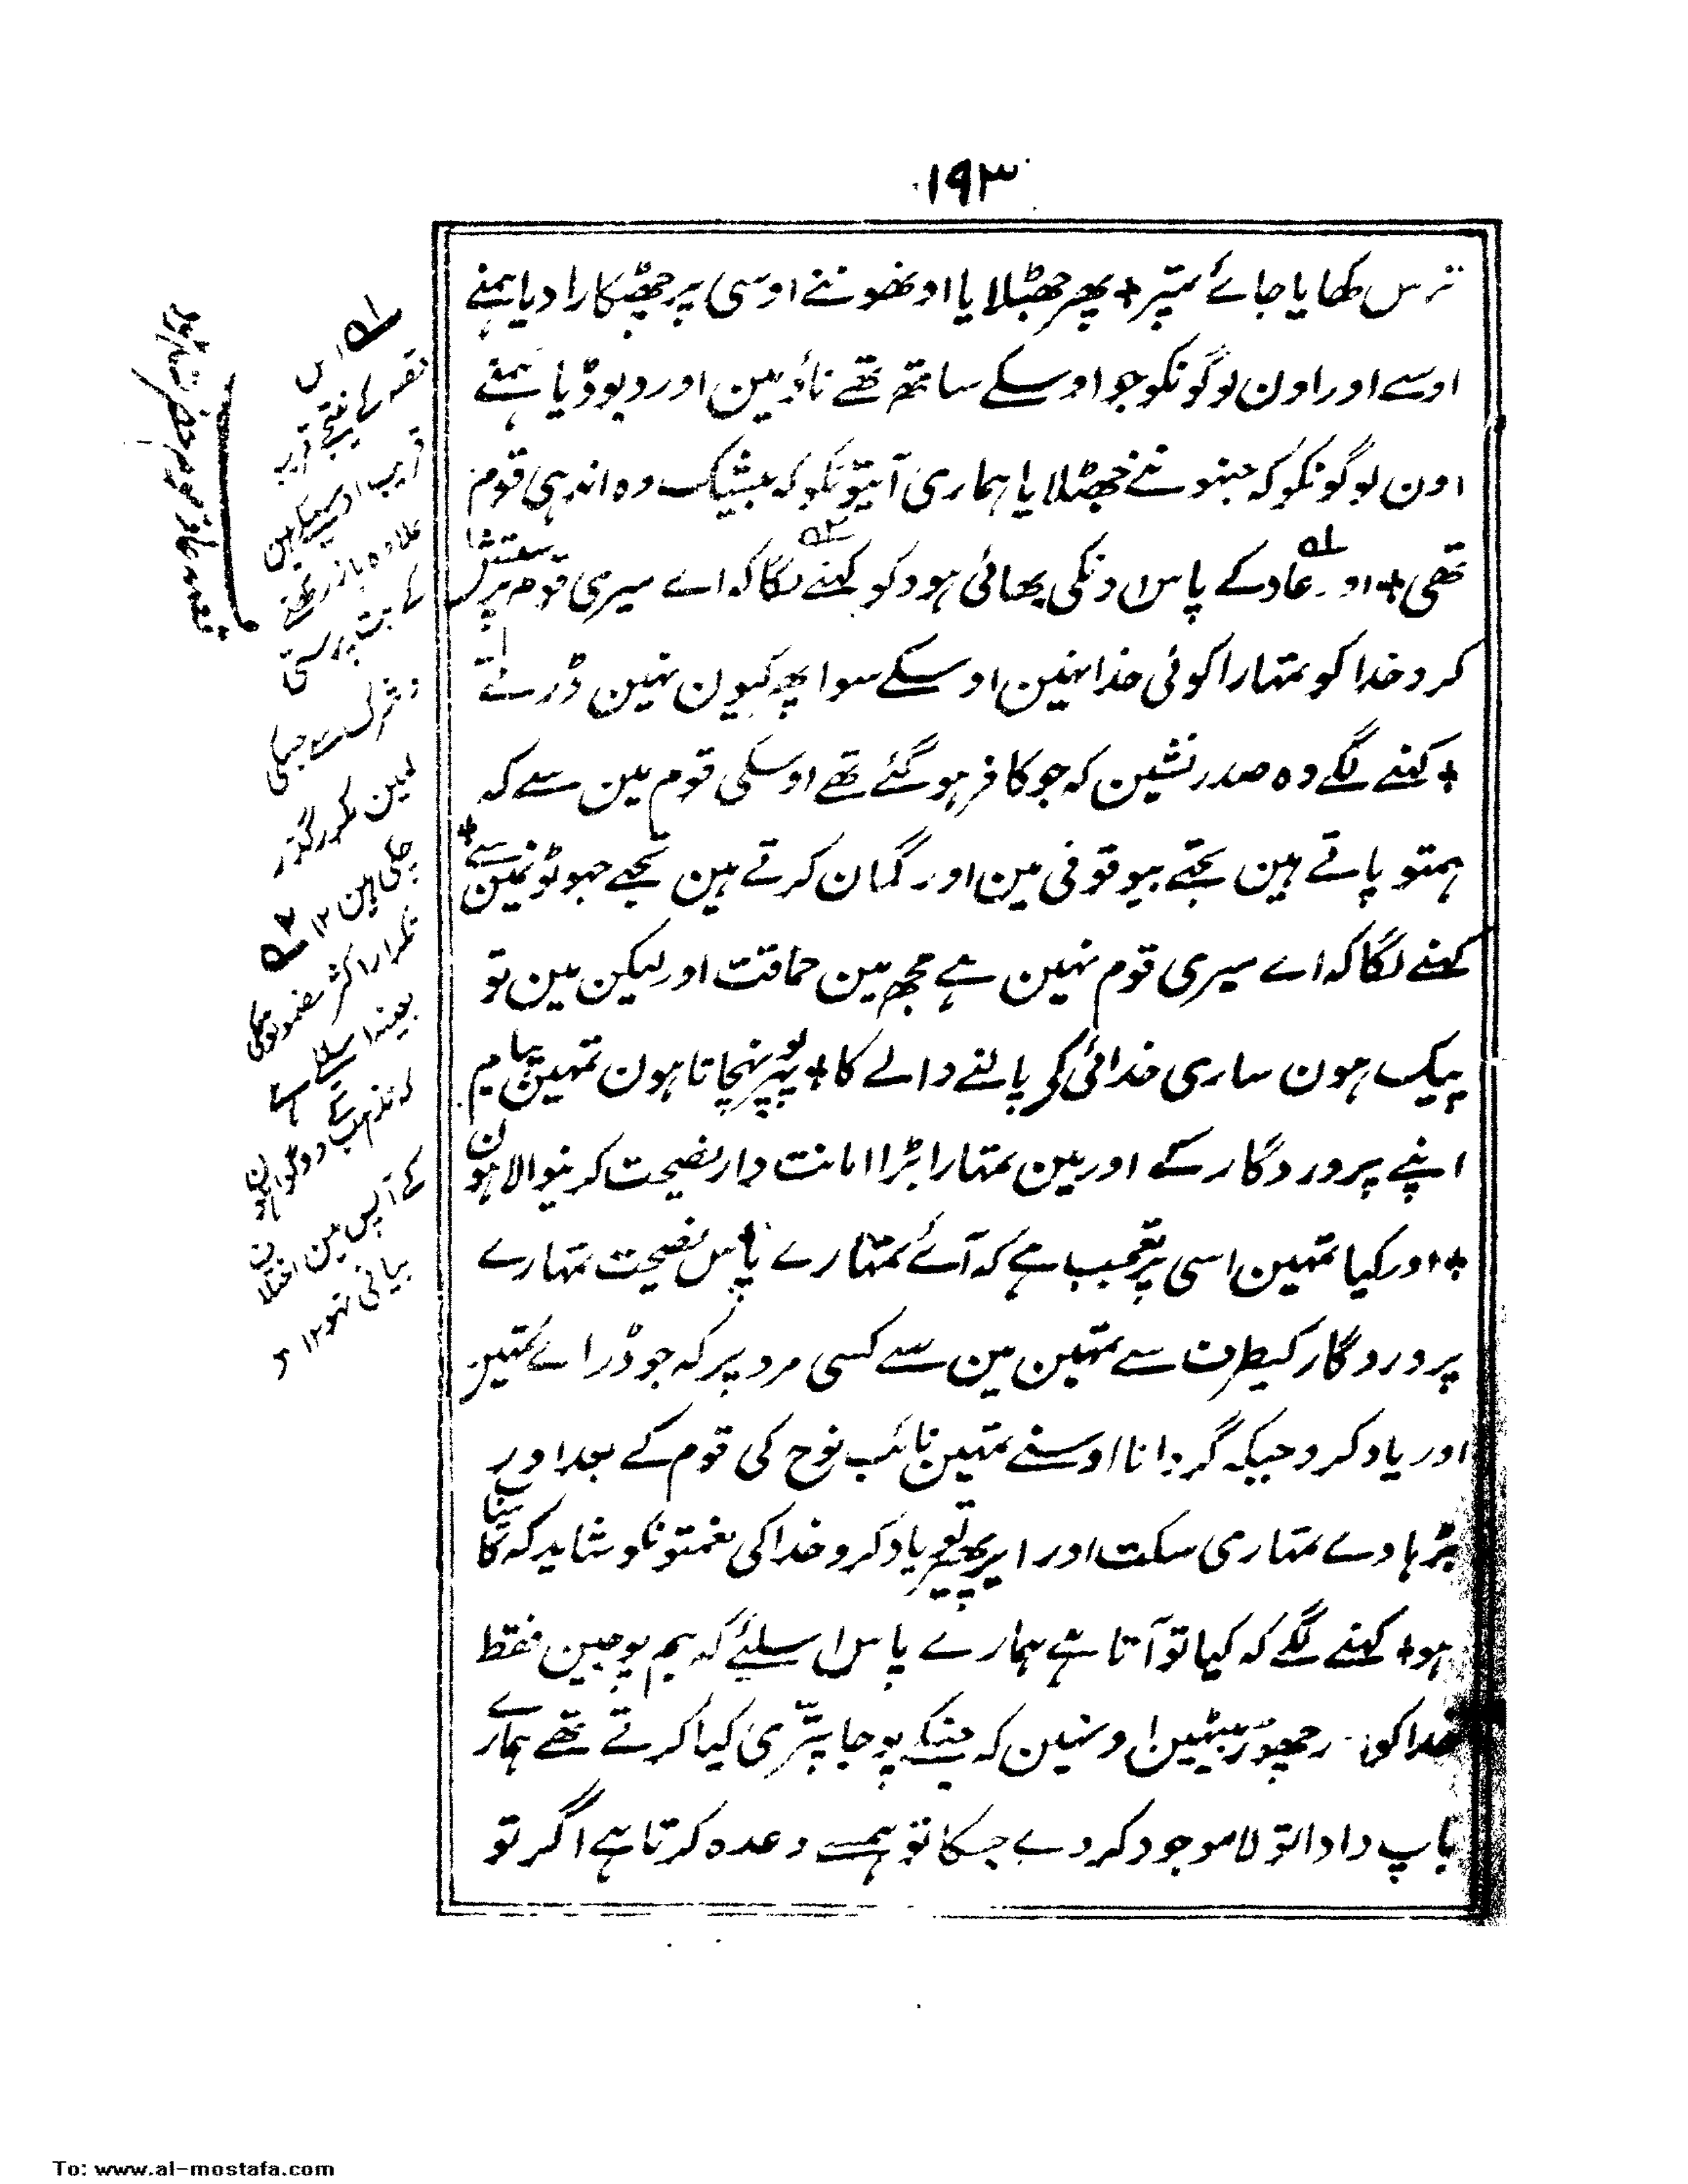 ۱۹۳
ترس کھایا جائے تمپر + پھر جھٹلایا اونھوننے اوسی پر چھٹکارا دیا ہمنے
اوسے اور اون لوگونکو جو اوسکے ساتھ تھے ناؤ مین اور دبو دیا ہمنے
اون لوگونکو کہ جنہوننے جھٹلایا ہماری آیتونکو کہ بیشک وہ اندہی قوم
تھی + اور عاد کے پاس اونکی بھائی ہود کو کہنے لگا کہ اے میری قوم پرستش
کرو خدا کو تمہارا کوئی خدا نہین اوسکے سوا پھر کیون نہین ڈرتے
+ کہنے لگے وہ صدر نشین کہ جو کافر ہو گئے تھے اوسکی قوم مین سے کہ
ہمتو پاتے ہین تجھے بیوقوفی مین اور گمان کرتے ہین تجھے جھوٹونمین سے +
کہنے لگا کہ اے میری قوم نہین ہے مجھ مین حماقت اور لیکن مین تو
پیک ہون ساری خدائی کی پالنے والے کا + پہنچاتا ہون تمہین پیام
اپنے پروردگار کے اور مین تمہارا بڑا امانت دار نصیحت کرنیوالا ہون
+ اور کیا تمہین اسی پر تعجب ہے کہ آئے تمہارے پاس نصیحت تمہارے
پروردگار کیطرف سے تمہین مین سے کسی مرد پر کہ جو ڈرائے تمہین
اور یاد کرو جبکہ گردانا اوسنے تمہین نائب نوح کی قوم کے بعد اور
بڑہا دے تمہاری سکت اور یاد کرو خدا کی نعمتونکو شاید کہ
ہو + کہنے لگے کہ کیا تو آتا ہے ہمارے پاس اسلئے کہ ہم پوجین فقط
خدا کو اور چھوڑ بیٹھین اونہین کہ جنکے پوجا پتری کیا کرتے تھے ہمارے
باپ دادا تو لا موجود کر دے جسکا تو ہمسے وعدہ کرتا ہے اگر تو
قصہ عاد قوم حضرت ہود
۱ اس
قصہ کے نتیجے قریب
قریب اوسیکے ہین
علاوہ باز رکھنے
کے بت پرستی
و شرک سے جبلی
مین مکرر گذر
چکی ہین ۱۲ ۲
تکرار اکثر مضمونونکی
بعینہ اسلئے ہے
کے آپس مین اختلاف
بیانی نہو ۱۲
To: www.al-mostafa.com